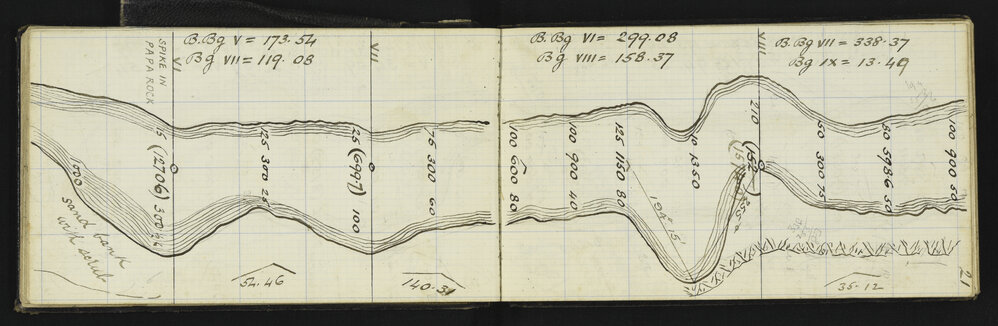 B.Bg V = 173.54
Bg VII = 119.08
SPIKE IN
PAPA ROCK
VI
VII
15 (1270.6) 300
125 370 25
25 (699.7) 100
75 300 60
1000
sand bank
with scrub
54.46
140.31
B.Bg VI = 299.08
Bg VIII = 158.37
VIII
B.Bg VII = 338.37
Bg IX = 13.49
100 600 80
100 900 40
125 1150 80
10 1350
210
(152
50 300 75
80 598.6 50
100 900 50
194° 15'
255
35.12
21